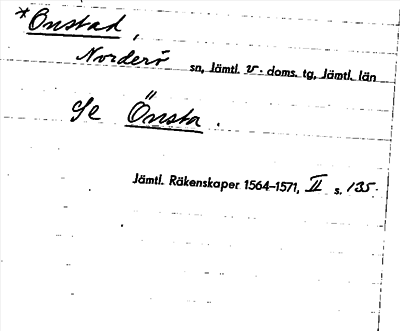 *Onstad,
Norderö sn, Jämtl. v. doms. tg, Jämtl. län
Se Önsta.
Jämtl. Räkenskaper 1564–1571, II s. 135.